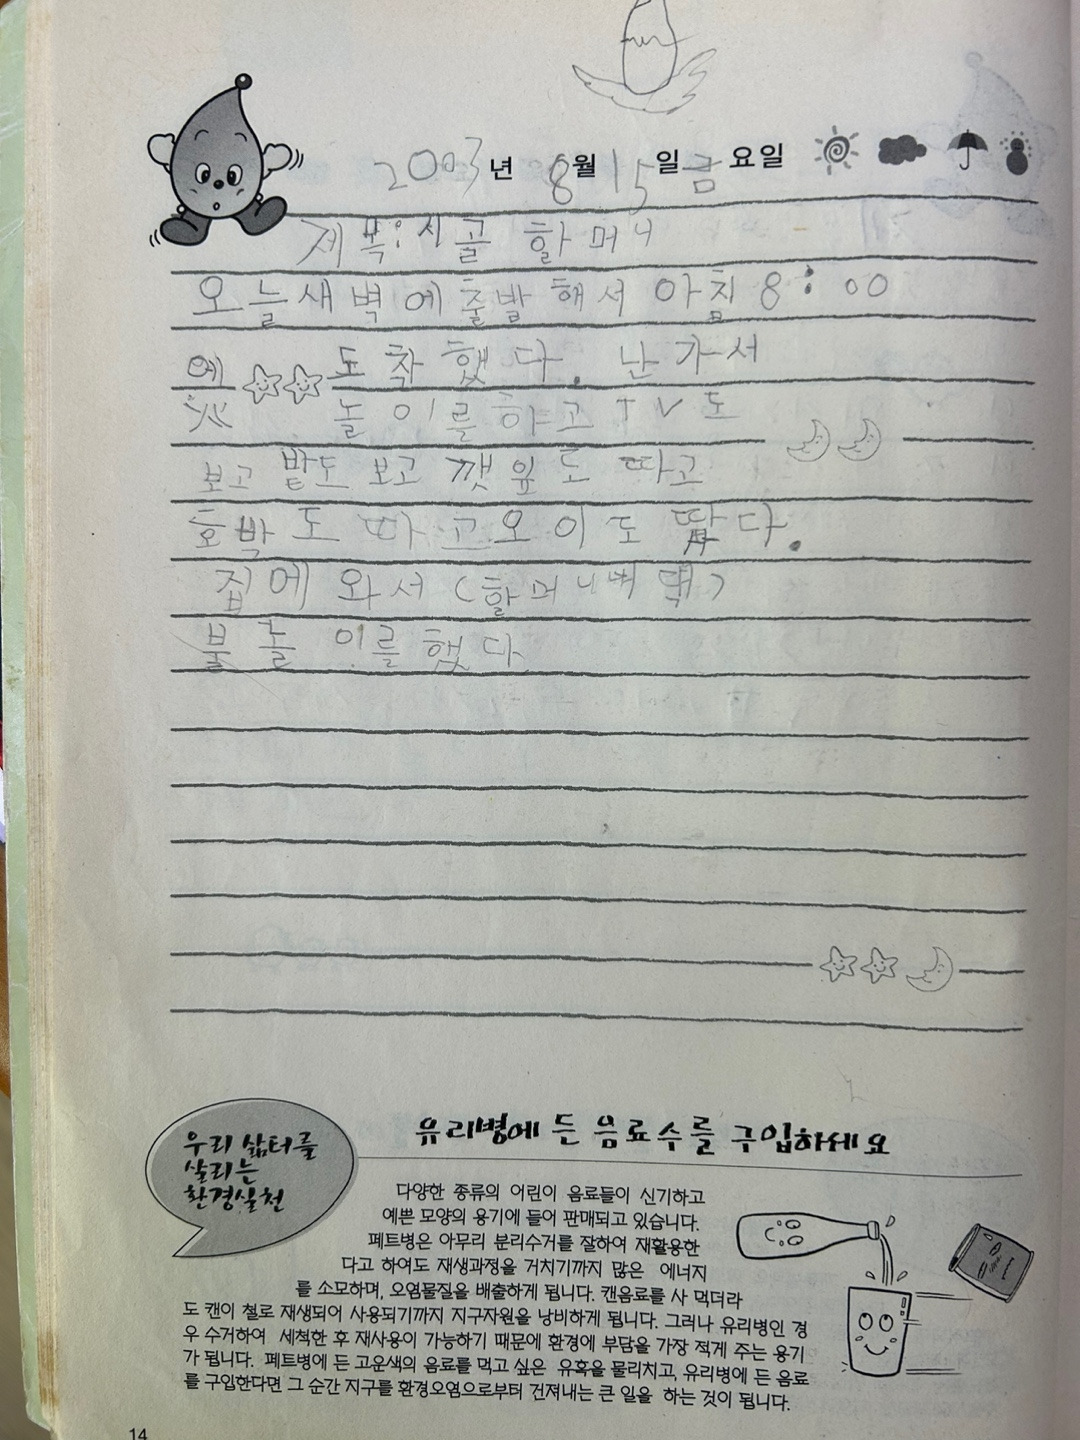 2003년 8월 15일 금요일
제목: 시골 할머니
오늘새벽에출발해서 아침8:00
에 도착했다. 난가서
놀이를하고TV도
보고 밭도 보고 깻잎도 따고
호박도 따고오이도 땄다.
집에 와서 (할머니 댁)
불놀이를했다
우리 삶터를
살리는
환경실천
유리병에 든 음료수를 구입하세요
다양한 종류의 어린이 음료들이 신기하고
예쁜 모양의 용기에 들어 판매되고 있습니다.
페트병은 아무리 분리수거를 잘하여 재활용한
다고 하여도 재생과정을 거치기까지 많은 에너지
를 소모하며, 오염물질을 배출하게 됩니다. 캔음료를 사 먹더라
도 캔이 철로 재생되어 사용되기까지 지구자원을 낭비하게 됩니다. 그러나 유리병인 경
우 수거하여 세척한 후 재사용이 가능하기 때문에 환경에 부담을 가장 적게 주는 용기
가 됩니다. 페트병에 든 고운색의 음료를 먹고 싶은 유혹을 물리치고, 유리병에 든 음료
를 구입한다면 그 순간 지구를 환경오염으로부터 건져내는 큰 일을 하는 것이 됩니다.
14